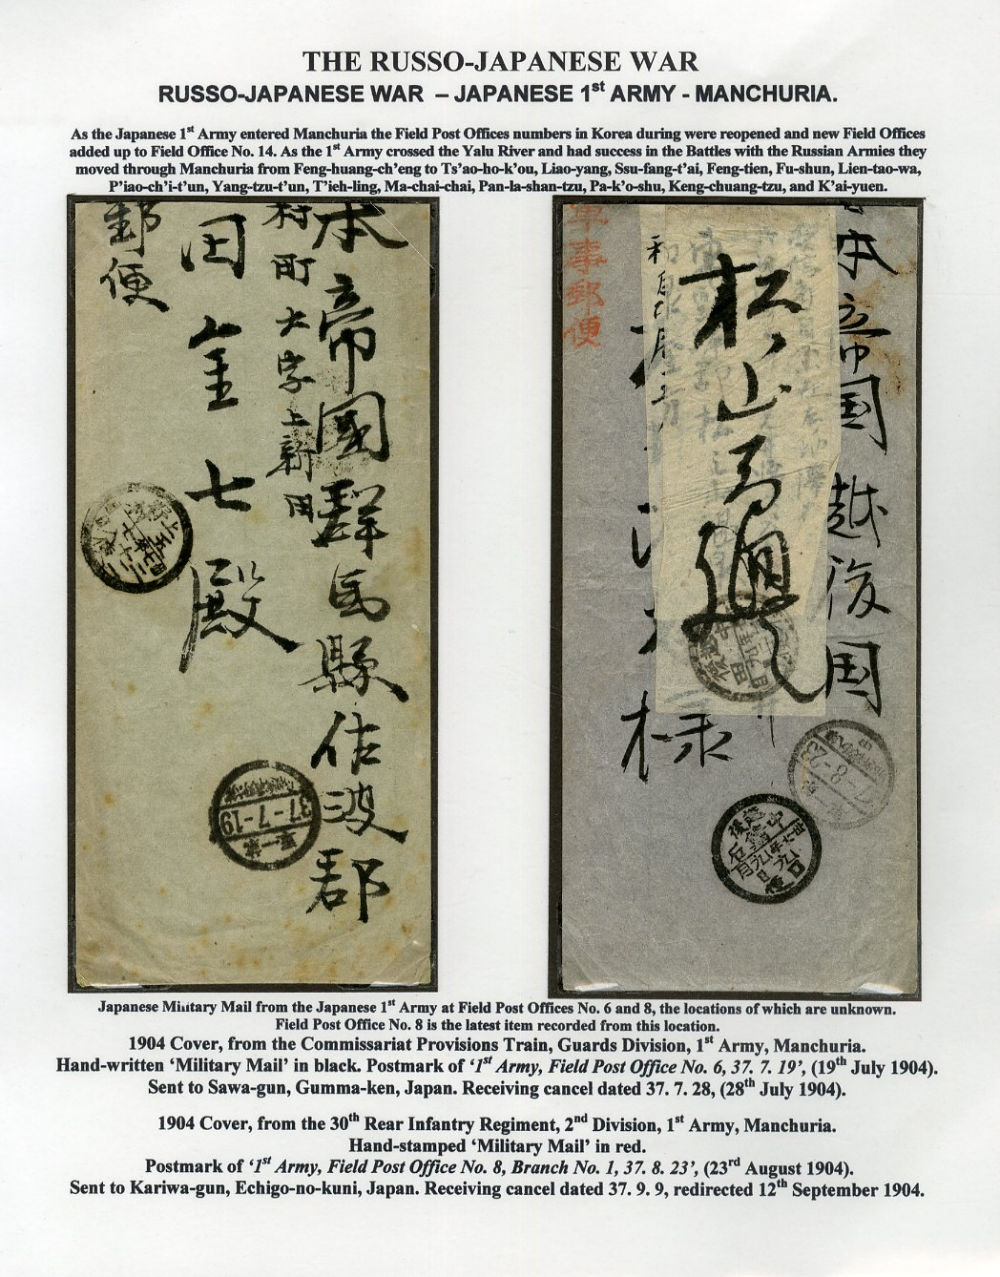 THE RUSSO-JAPANESE WAR
RUSSO-JAPANESE WAR – JAPANESE 1st ARMY - MANCHURIA.
As the Japanese 1st Army entered Manchuria the Field Post Offices numbers in Korea during were reopened and new Field Offices
added up to Field Office No. 14. As the 1st Army crossed the Yalu River and had success in the Battles with the Russian Armies they
moved through Manchuria from Feng-huang-ch'eng to Ts'ao-ho-k'ou, Liao-yang, Ssu-fang-t'ai, Feng-tien, Fu-shun, Lien-tao-wa,
P'iao-ch'i-t'un, Yang-tzu-t'un, T'ieh-ling, Ma-chai-chai, Pan-la-shan-tzu, Pa-k'o-shu, Keng-chuang-tzu, and K'ai-yuen.
本帝國群馬縣佐波郡
村町大字上新田
田金七殿
郵便
37-7-19
本帝国越後国
松山
様
軍事郵便
37-8-23
Japanese Military Mail from the Japanese 1st Army at Field Post Offices No. 6 and 8, the locations of which are unknown.
Field Post Office No. 8 is the latest item recorded from this location.
1904 Cover, from the Commissariat Provisions Train, Guards Division, 1st Army, Manchuria.
Hand-written 'Military Mail' in black. Postmark of '1st Army, Field Post Office No. 6, 37. 7. 19', (19th July 1904).
Sent to Sawa-gun, Gumma-ken, Japan. Receiving cancel dated 37. 7. 28, (28th July 1904).
1904 Cover, from the 30th Rear Infantry Regiment, 2nd Division, 1st Army, Manchuria.
Hand-stamped 'Military Mail' in red.
Postmark of '1st Army, Field Post Office No. 8, Branch No. 1, 37. 8. 23', (23rd August 1904).
Sent to Kariwa-gun, Echigo-no-kuni, Japan. Receiving cancel dated 37. 9. 9, redirected 12th September 1904.